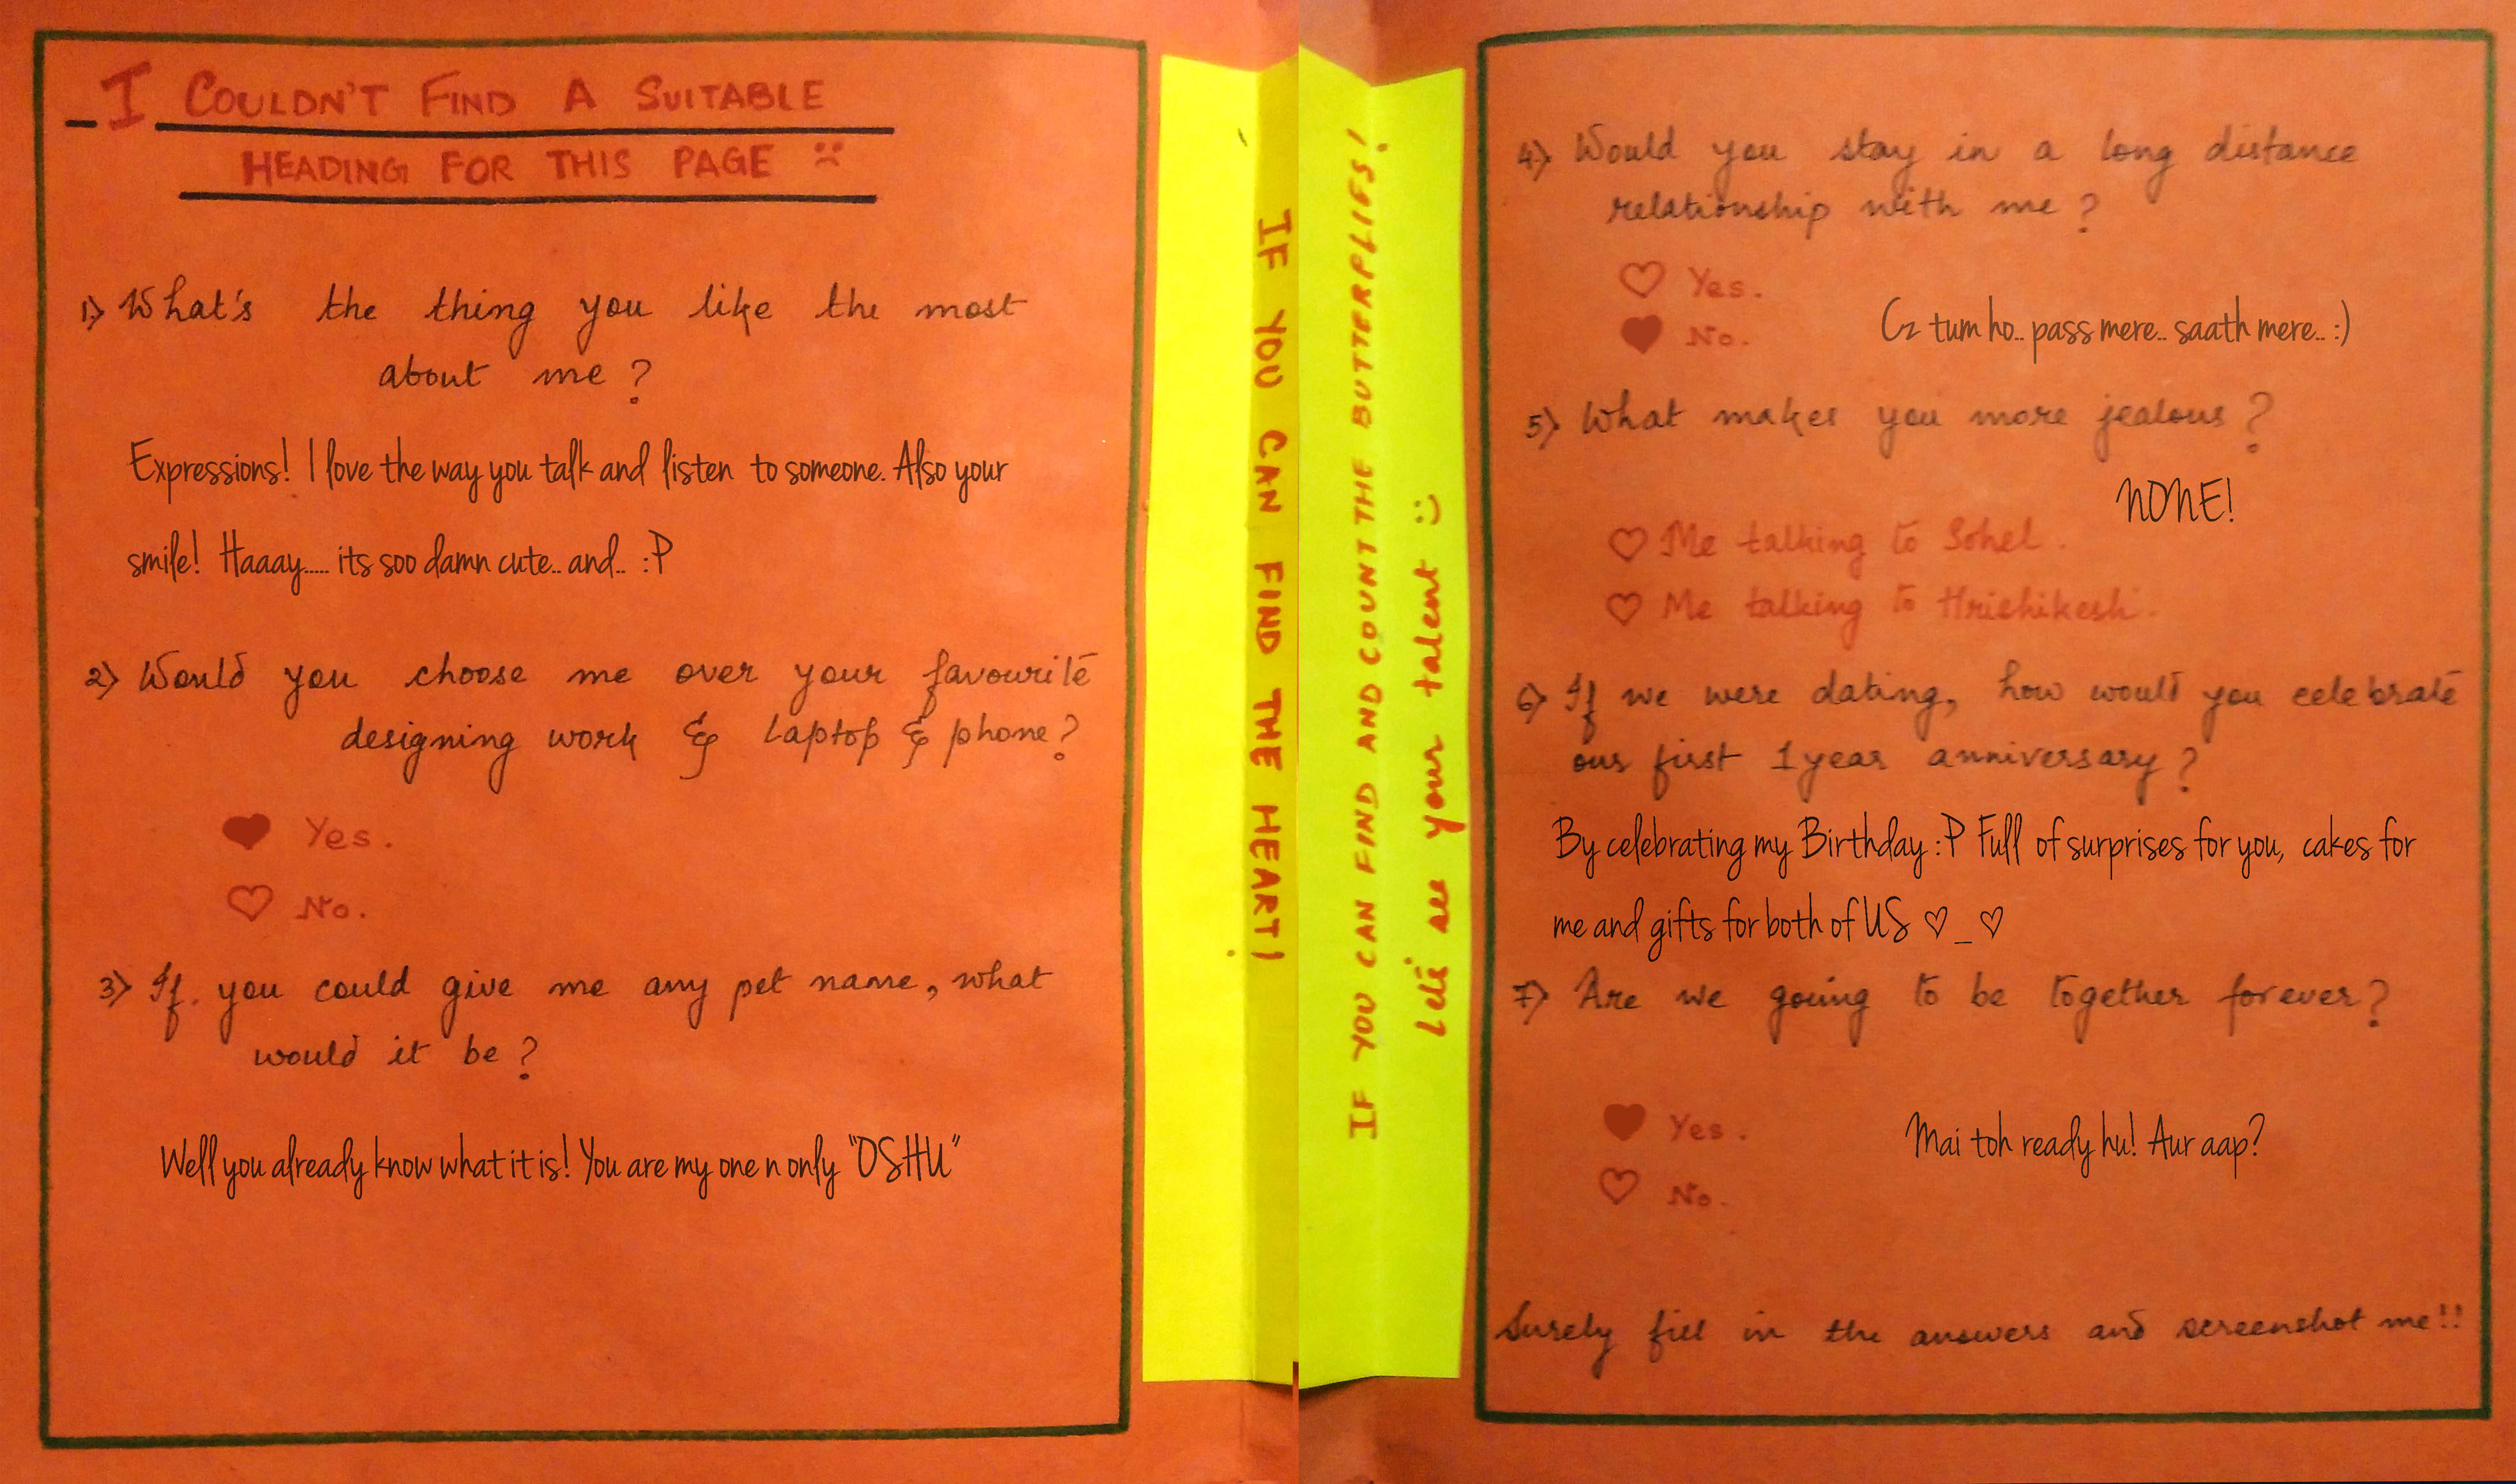 I COULDN'T FIND A SUITABLE
HEADING FOR THIS PAGE :(
1) What's the thing you like the most
about me?
Expressions! I love the way you talk and listen to someone. Also your
smile! Haaay..... its soo damn cute.. and.. :P
2) Would you choose me over your favourite
designing work & laptop & phone?
♥ Yes.
♡ No.
3) If you could give me any pet name, what
would it be?
Well you already know what it is! You are my one n only "OSHU"
IF YOU CAN FIND THE HEART!
IF YOU CAN FIND AND COUNT THE BUTTERFLIES!
Let's see your talent :)
4) Would you stay in a long distance
relationship with me?
♡ Yes.
♥ No.
Cz tum ho.. pass mere.. saath mere.. :)
5) What makes you more jealous?
NONE!
♡ Me talking to Sohel.
♡ Me talking to Hrishikesh.
6) If we were dating, how would you celebrate
our first 1 year anniversary?
By celebrating my Birthday :P Full of surprises for you, cakes for
me and gifts for both of US ♡_♡
7) Are we going to be together forever?
♥ Yes.
♡ No.
Mai toh ready hu! Aur aap?
Surely fill in the answers and screenshot me!!